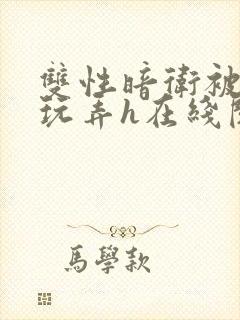 雙性暗衛被
玩弄h在綫
馬學款